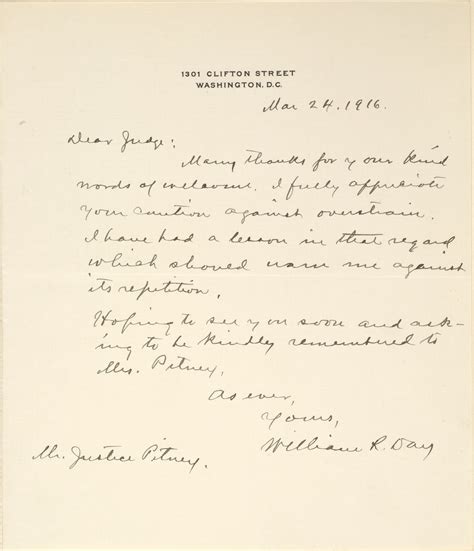 1301 CLIFTON STREET
WASHINGTON, D.C.
Mar 24, 1916.
Dear Judge:
Many thanks for your kind
words of welcome. I fully appreciate
your caution against overstrain.
I have had a lesson in that regard
which should warn me against
its repetition.
Hoping to see you soon and ask-
ing to be kindly remembered to
Mrs. Pitney,
As ever,
Yours,
William R. Day
Mr. Justice Pitney.